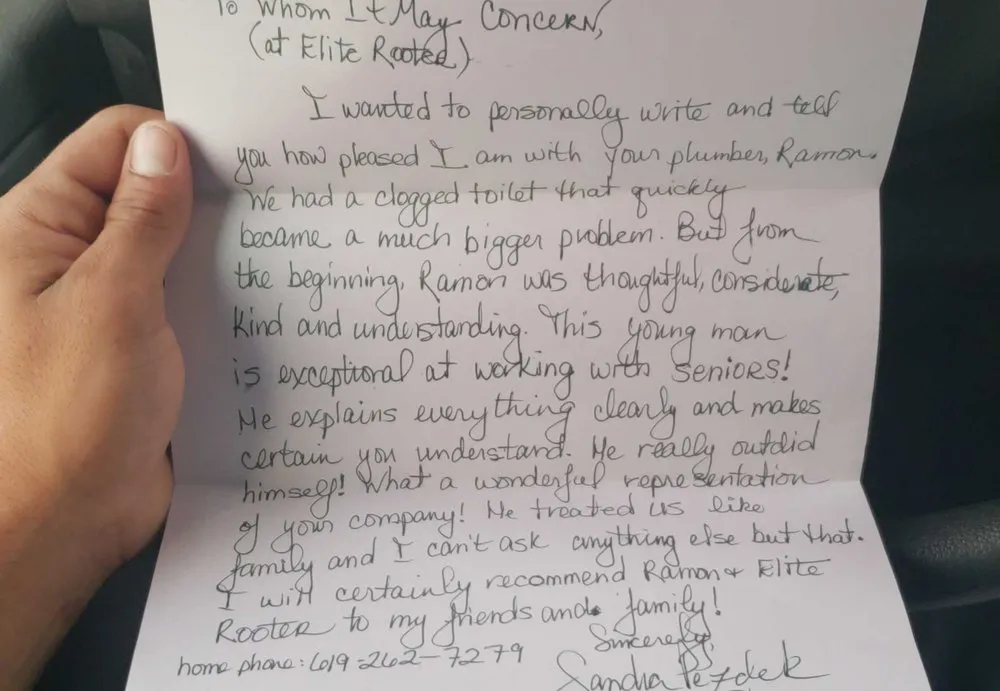 To Whom It May Concern,
(at Elite Rooter)
I wanted to personally write and tell
you how pleased I am with your plumber, Ramon.
We had a clogged toilet that quickly
became a much bigger problem. But from
the beginning, Ramon was thoughtful, considerate,
kind and understanding. This young man
is exceptional at working with seniors!
He explains everything clearly and makes
certain you understand. He really outdid
himself! What a wonderful representation
of your company! He treated us like
family and I can't ask anything else but that.
I will certainly recommend Ramon & Elite
Rooter to my friends and family!
Sincerely,
home phone: 619-262-7279
Sandra Pezdek